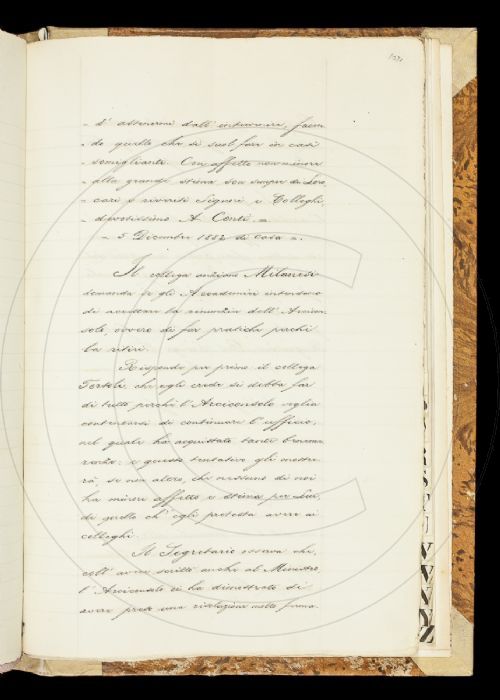 - d' astenermi dall' intervenire, facen
- do quello che si suol fare in casi
- somiglianti. Con affetto non minore
- alla grande stima son sempre di Loro,
- cari e riveriti Signori e Colleghi,
- devotissimo A. Conti. -
- 5 Dicembre 1882 di Casa -.
Il collega anziano Milanesi
domanda se gli Accademici intendano
di accettare la rinunzia dell' Arcicon
solo, ovvero di far pratiche perchè
la ritiri.
Risponde per primo il collega
Tortoli, che egli crede si debba far
di tutto perchè l' Arciconsolo voglia
contentarsi di continuare l' ufficio,
nel quale ha acquistato tante
e questo tentativo gli mostre
rà, se non altro, che nessuno di noi
ha minore affetto e stima per Lui,
di quello ch' egli protesta avere ai
colleghi.
Il Segretario osserva che,
coll' avere scritto anche al Ministro,
l' Arciconsolo ci ha dimostrato di
avere preso una risoluzione molto ferma.